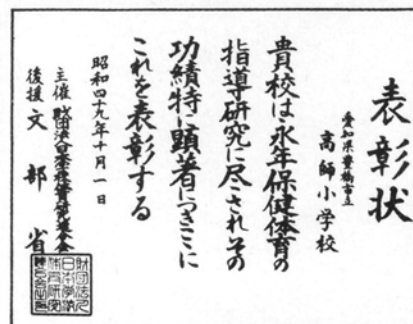 表彰状
愛知県豊橋市立
高師小学校
貴校は永年保健体育の
指導研究に尽されその
功績特に顕著につきここに
これを表彰する
昭和四十九年十月一日
主催 財団法人日本学校体育研究連合会
後援 文部省